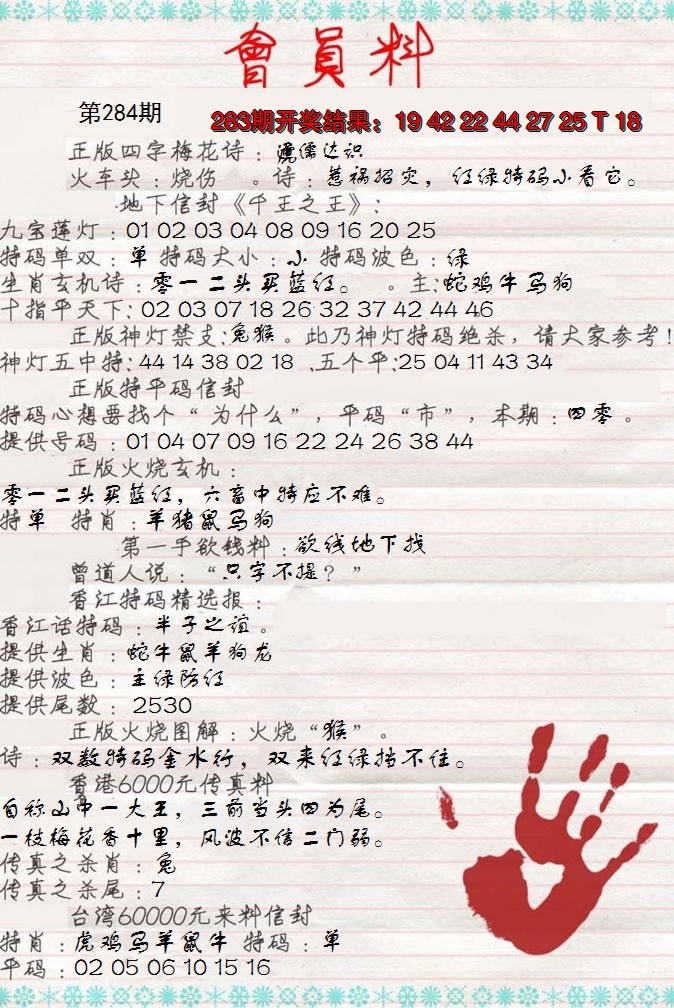 會員料
第284期
283期开奖结果：19 42 22 44 27 25 T 18
正版四字梅花诗：虏儒达识
火车头：烧伤 。诗：惹祸招灾，红绿特码小看它。
地下信封《千王之王》：
九宝莲灯：01 02 03 04 08 09 16 20 25
特码单双：单 特码大小：小 特码波色：绿
生肖玄机诗：零一二头买蓝红。 。主：蛇鸡牛马狗
十指平天下：02 03 07 18 26 32 37 42 44 46
正版神灯禁支：兔猴。此乃神灯特码绝杀，请大家参考！
神灯五中特：44 14 38 02 18 .五个平：25 04 11 43 34
正版特平码信封
特码心想要找个“为什么”，平码“市”，本期：四零。
提供号码：01 04 07 09 16 22 24 26 38 44
正版火烧玄机：
零一二头买蓝红，六畜中特应不难。
特单 特肖：羊猪鼠马狗
第一手欲钱料：欲钱地下找
曾道人说：“只字不提？”
香江特码精选报：
香江话特码：半子之谊。
提供生肖：蛇牛鼠羊狗龙
提供波色：主绿防红
提供尾数：2530
正版火烧图解：火烧“猴”。
诗：双数特码金水行，双来红绿挡不住。
香港6000元传真料
自称山中一大王，三前当头四为尾。
一枝梅花香十里，风波不信二门弱。
传真之杀肖：兔
传真之杀尾：7
台湾60000元来料信封
特肖：虎鸡马羊鼠牛 特码：单
平码：02 05 06 10 15 16